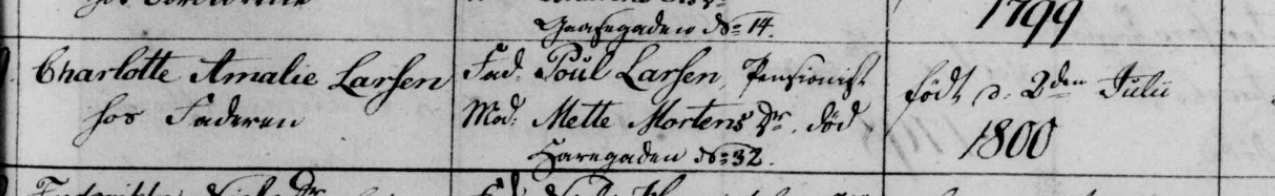 Gaasegaden No 14.
1799
Charlotte Amalie Larsen
hos Faderen
Fad. Poul Larsen, Pensionist
Mod: Mette Mortens Dr. død
No 32.
født d. 2den Julii
1800